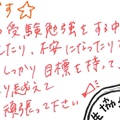 です☆
受験勉強をする中
したり、不安になったり
しっかり目標を持って、
を迎えて
頑張って下さい
生協